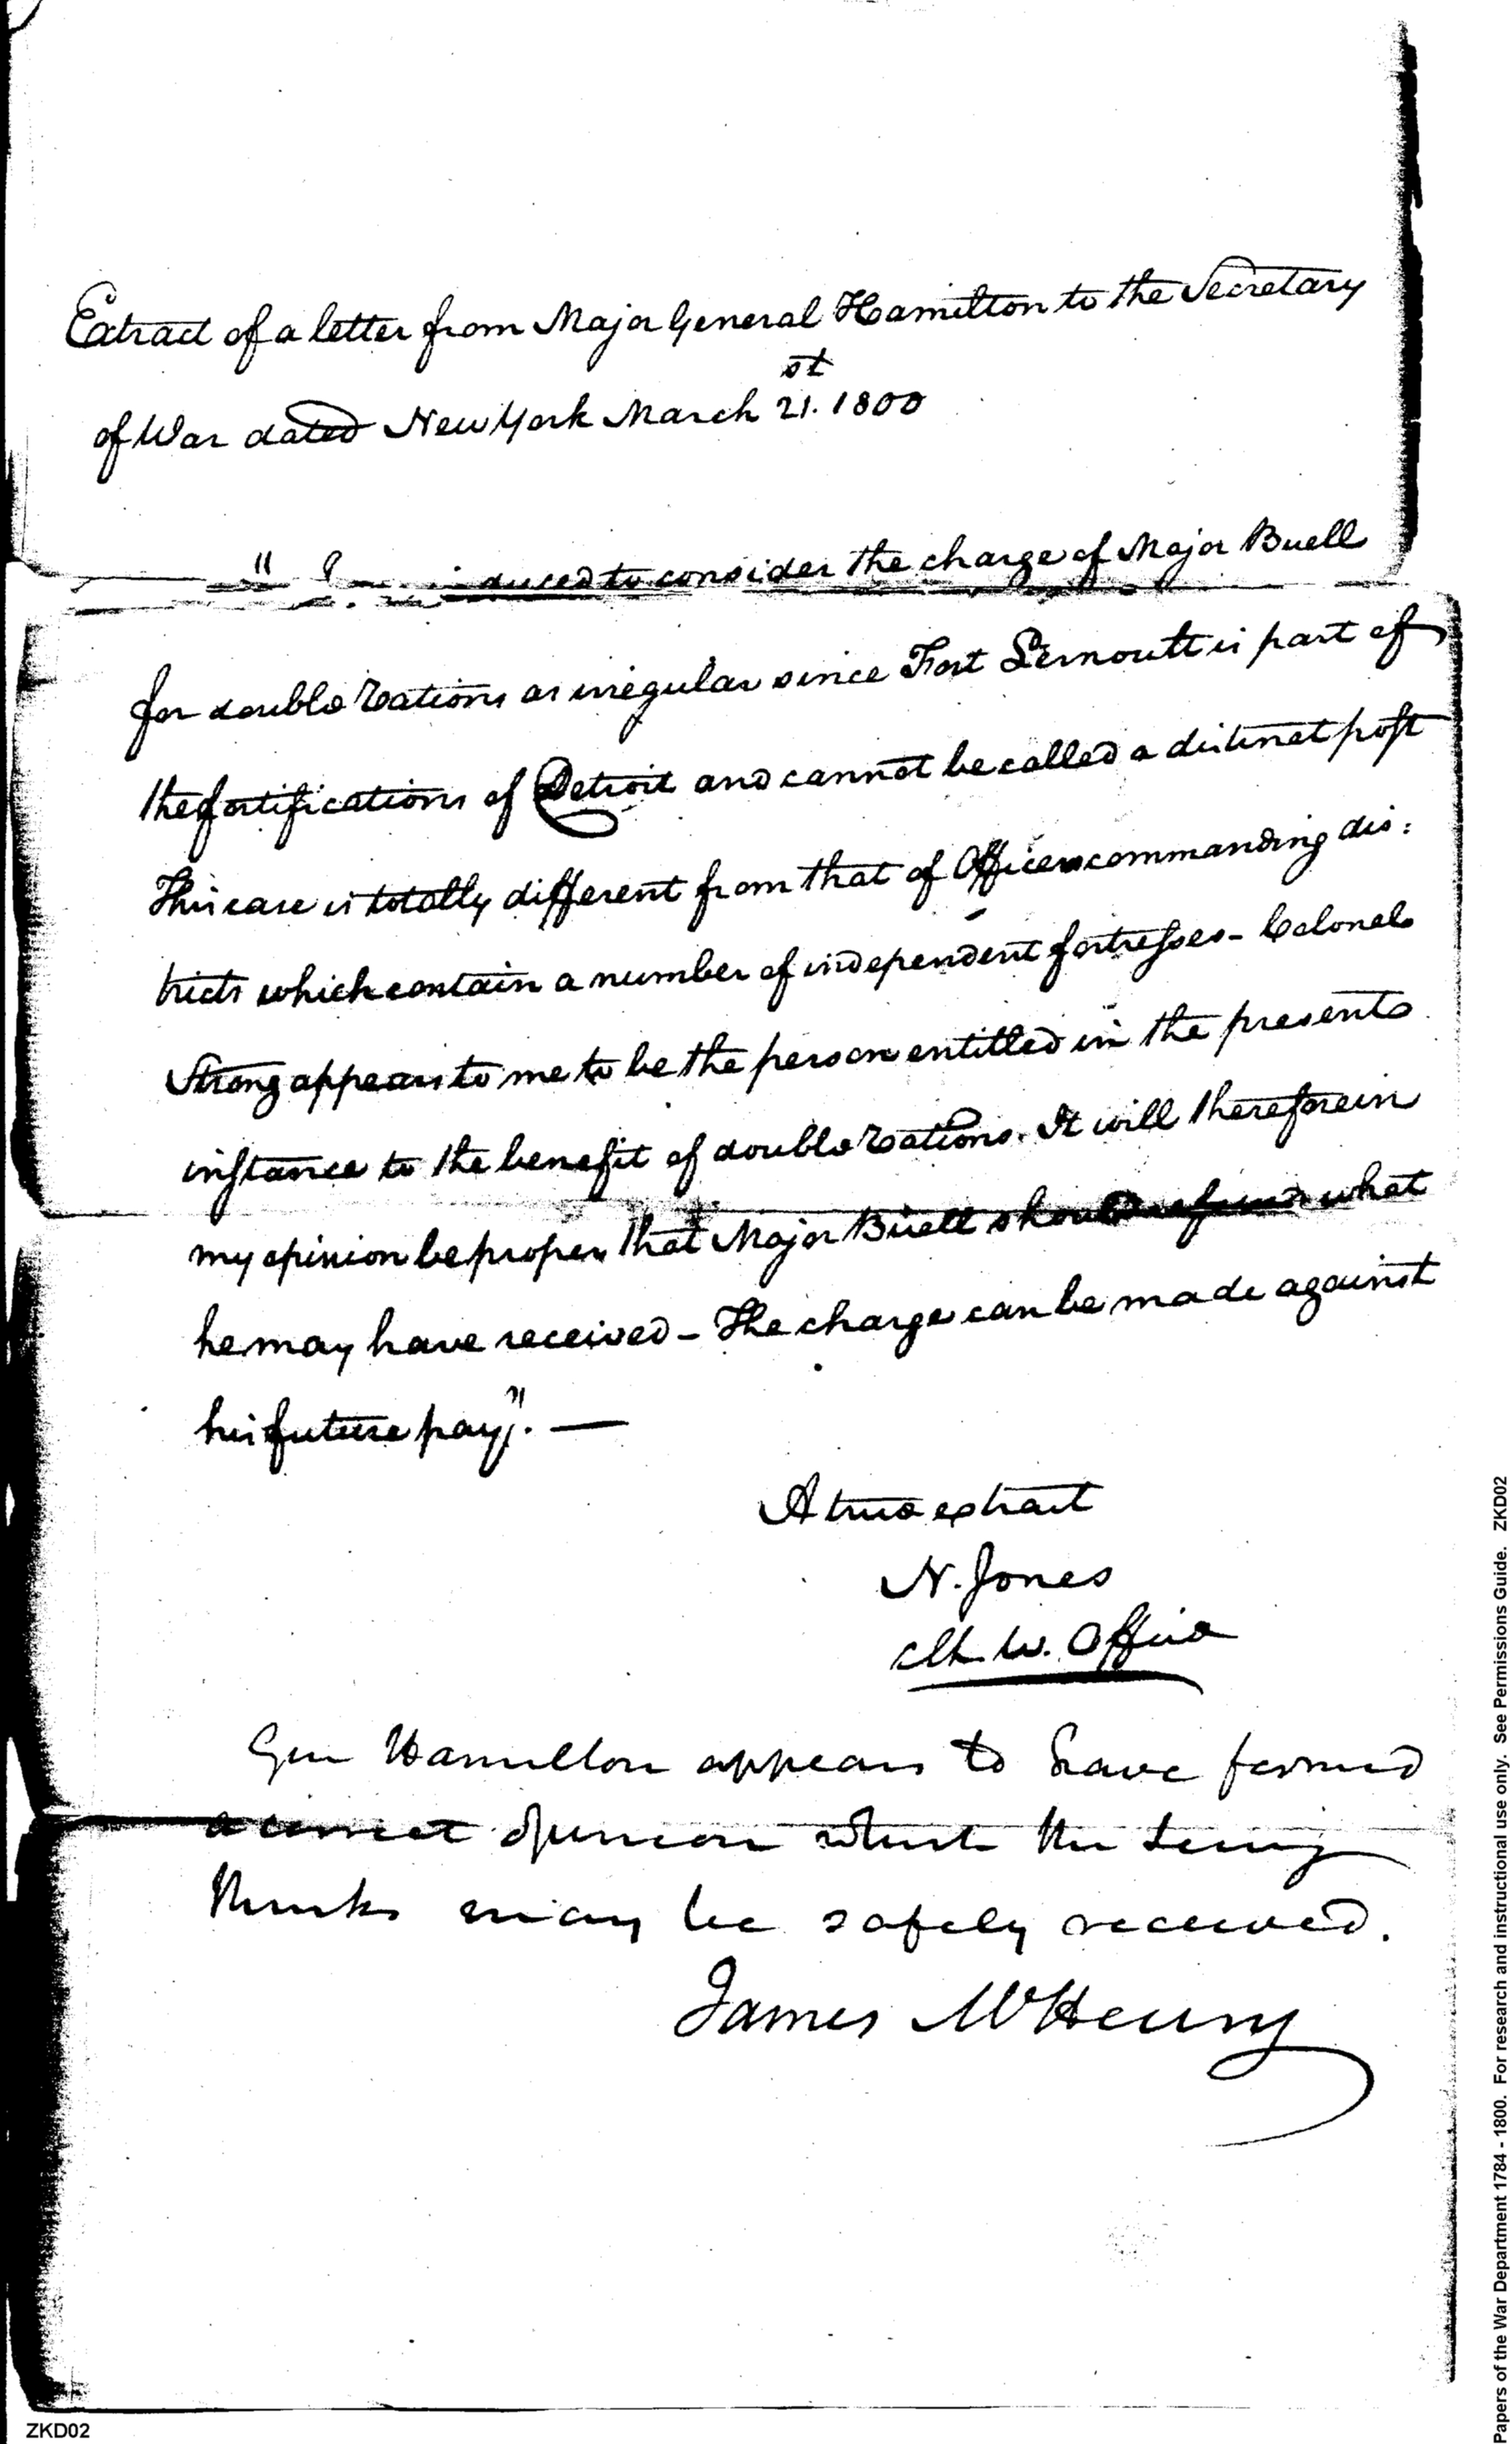 Extract of a letter from Major General Hamilton to the Secretary
of War dated New York March 21.st 1800
" duced to consider the charge of Major Buell
for double Rations as irregular since Fort Lernoult is part of
the fortifications of Detroit and cannot be called a distinct post
This case is totally different from that of Officers commanding dis:
tricts which contain a number of independent fortresses - Colonel
Strong appears to me to be the person entitled in the present
instance to the benefit of double Rations. It will therefore in
my opinion be proper that Major Buell should refund what
he may have received - The charge can be made against
his future pay". —
A true extract
N. Jones
Clk W. Office
Gen Hamilton appears to have formed
a correct opinion which the Secry
thinks may be safely received.
James McHenry
ZKD02
Papers of the War Department 1784 - 1800. For research and instructional use only. See Permissions Guide. ZKD02